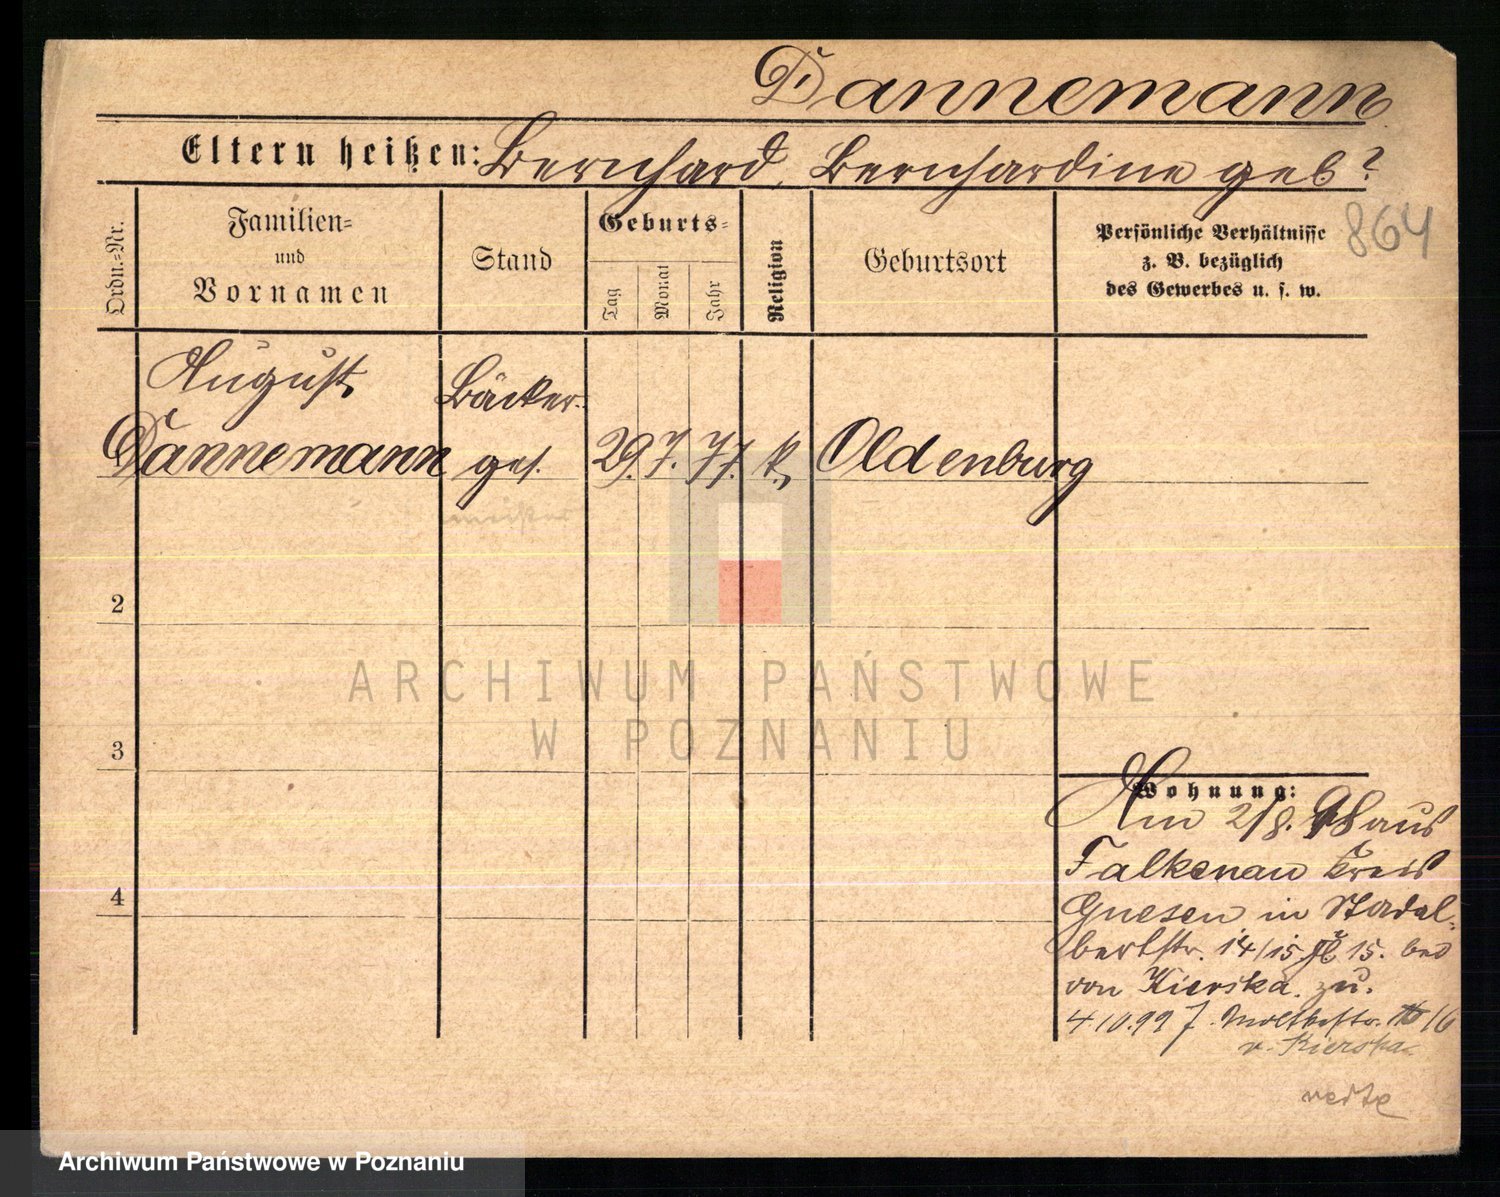 Dannemann
Eltern heißen: Bernhard, Bernhardine geb?
864
Ordn.-Nr.
Familien-
und
Vornamen
Stand
Geburts-
Tag
Monat
Jahr
Religion
Geburtsort
Persönliche Verhältnisse
z. B. bezüglich
des Gewerbes u. s. w.
August
Dannemann
Bäcker-
ges.
29. 7. 77. k. Oldenburg
meister
2
3
4
ARCHIWUM PAŃSTWOWE
W POZNANIU
Wohnung:
Am 2/8. 98 aus
Falkenau Kreis
Gnesen in Stadal-
bertstr. 14/15 15. bei
von Kierska zu.
4.10.99 J. Moltkestr. 16
v. Kierska
Archiwum Państwowe w Poznaniu